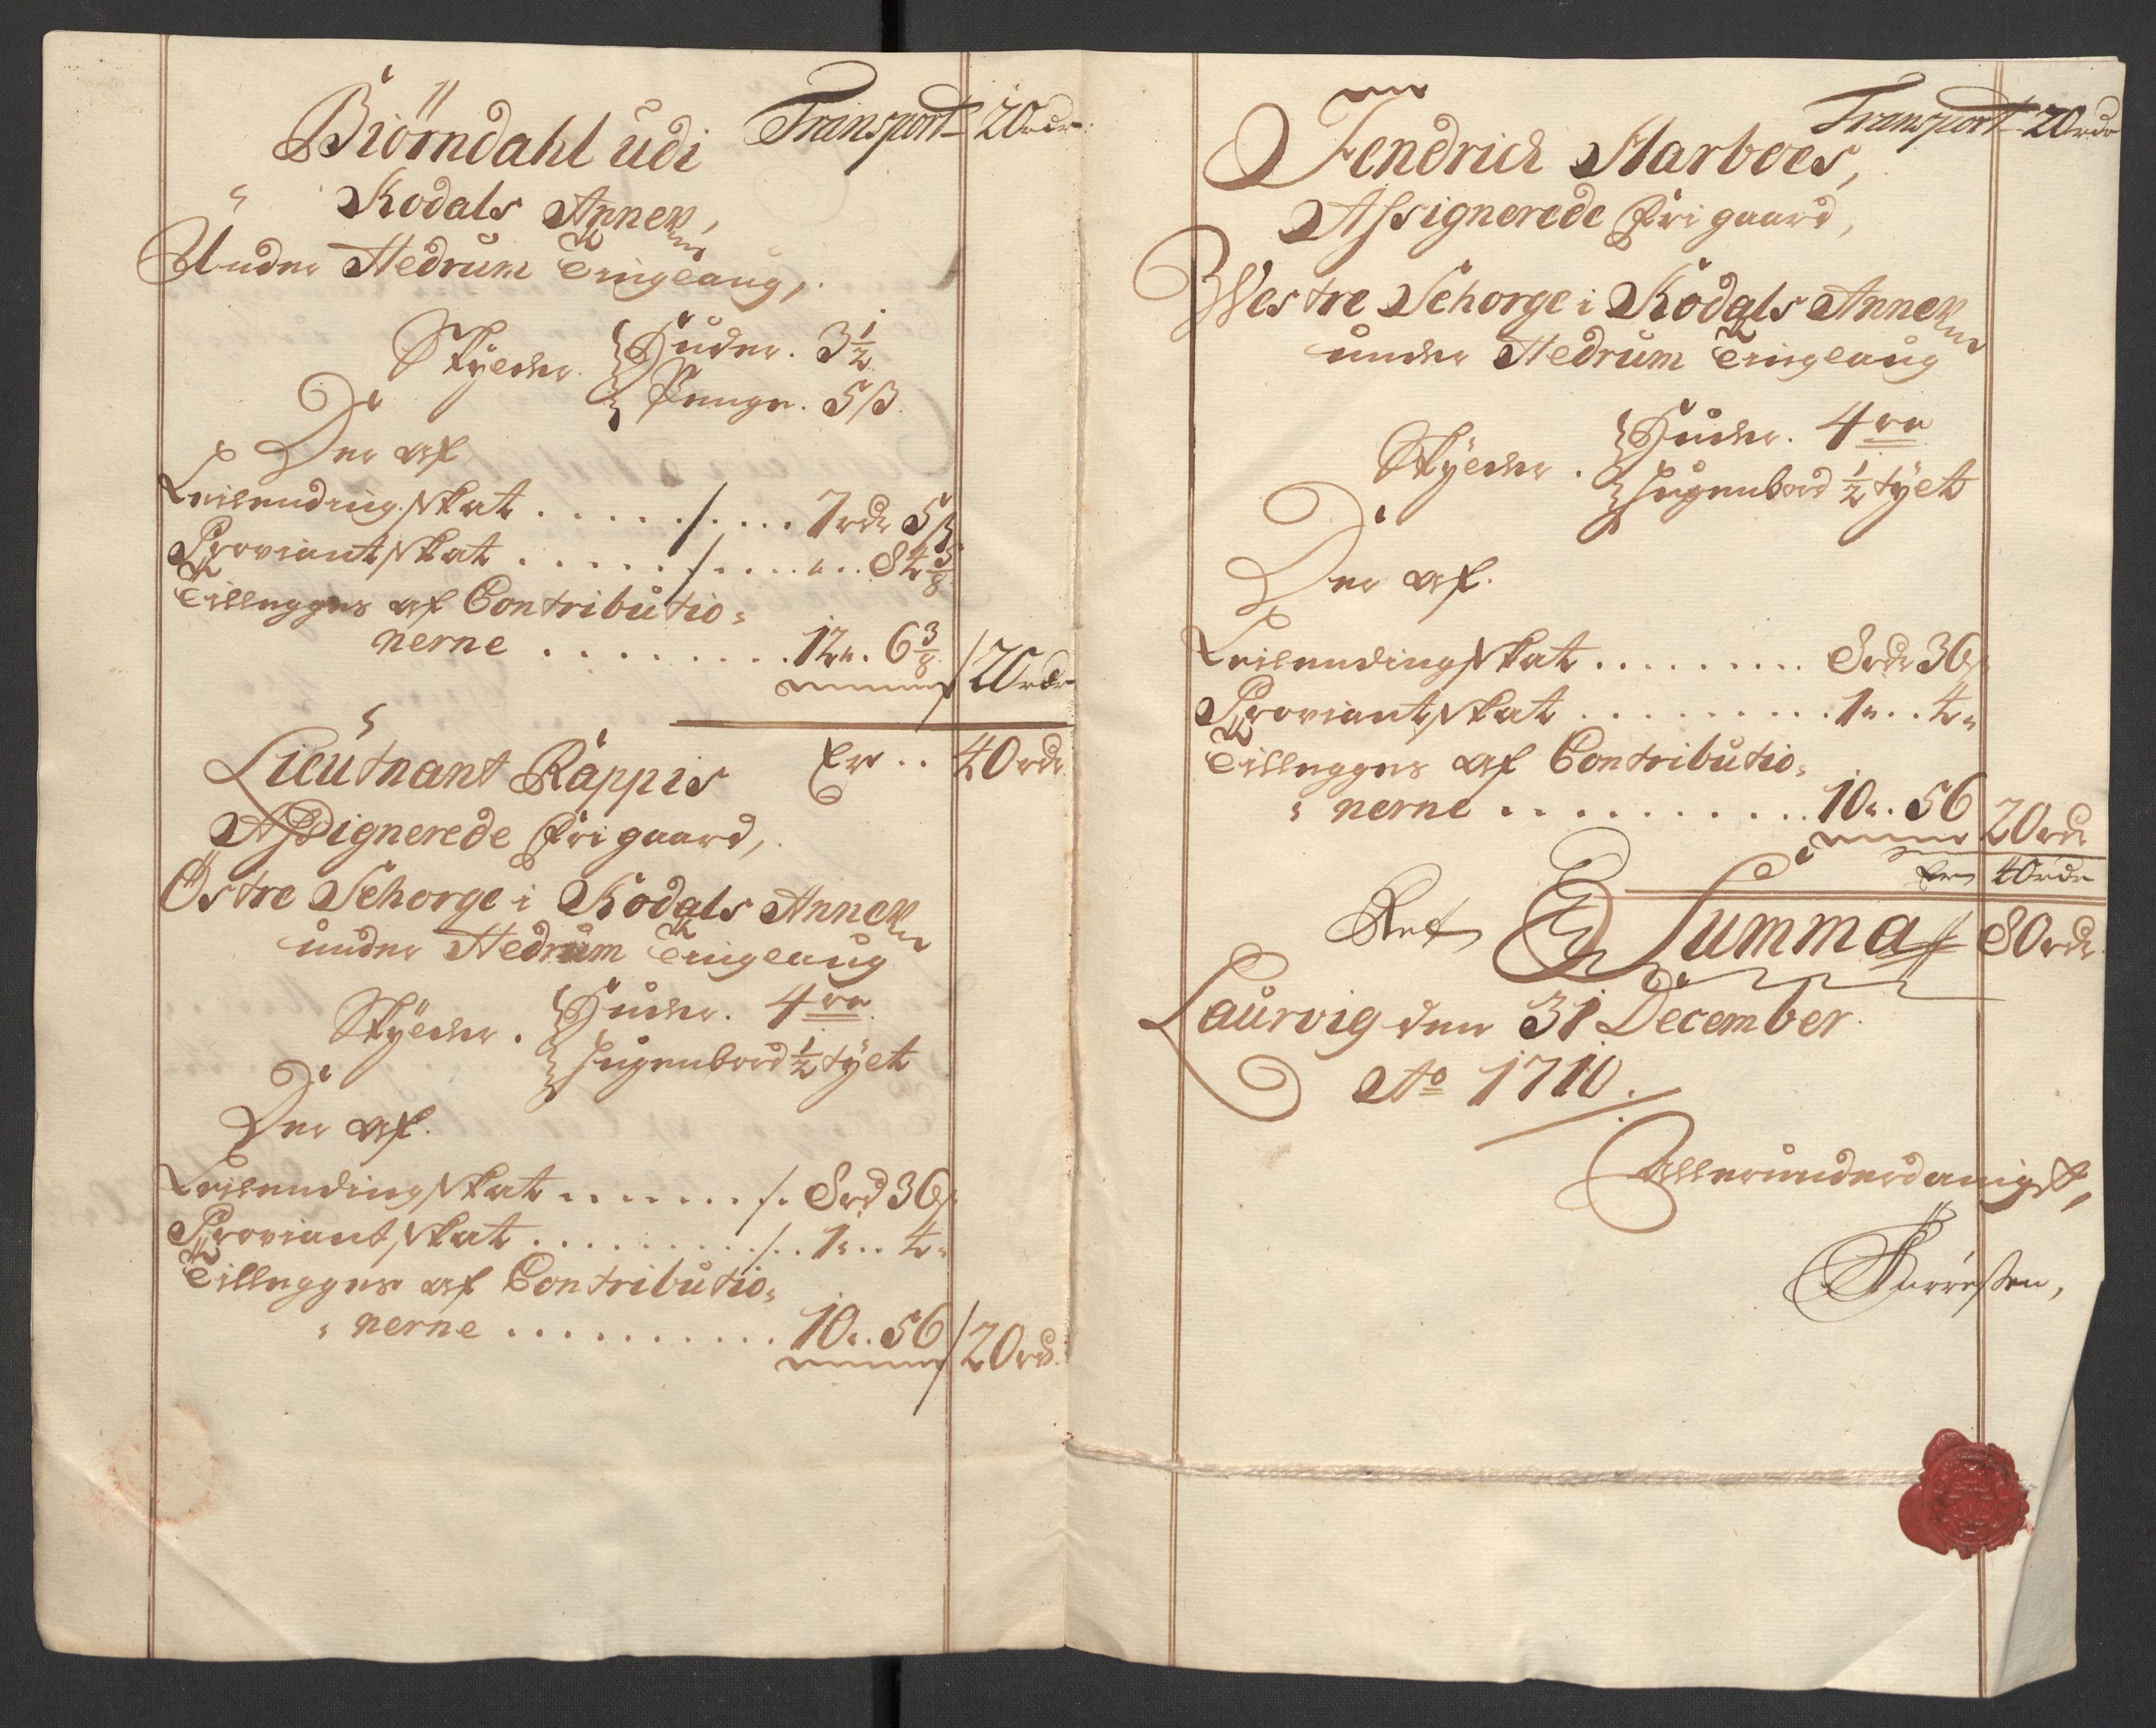 Transport 20 rdr
Biörndahl udi
Kodals Annex,
Under Hedrum Tinglaug,
Skylder. Huder. 3 1/2
Penge. 5 ß.
Der af
Leilendingskat . . . . . . . . 7 rdr 5 ß
Proviantskat . . . . . . . . „ . . 84 5/8
Tillegges af Contributio=
nerne . . . . . . . . 12 „. 6 3/8
20 rdr
Er . . 40 rdr
Lieutnant Rappis
Assignerede frigaard,
Östre Schorge i Kodals Annex
under Hedrum Tinglaug
Skylder. Huder. 4re
Engenbord 1/2 tylt
Der af.
Leilendingskat . . . . . . . . 8 rd 36 ß
Proviantskat . . . . . . . . . 1 „ . . 4 „
Tillegges af Contributio=
nerne . . . . . . . . . . 10 „. 56
20 rd.
Transport 20 rdr
Fendrich Marboes,
Assignerede frigaard,
Westre Schorge i Kodals Annex
under Hedrum Tinglaug
Skylder. Huder. 4re
Engenbord 1/2 tylt
Der af.
Leilendingskat . . . . . . . . . 8 rdr 36 ß
Proviantskat . . . . . . . . . 1 „ . . 4 „
Tillegges af Contributio=
nerne . . . . . . . . . . 10 „. 56
20 rdr
Er 40 rdr
Summa 80 rdr
Laurvig den 31 December
Ao 1710.
Allerunderdanigst,